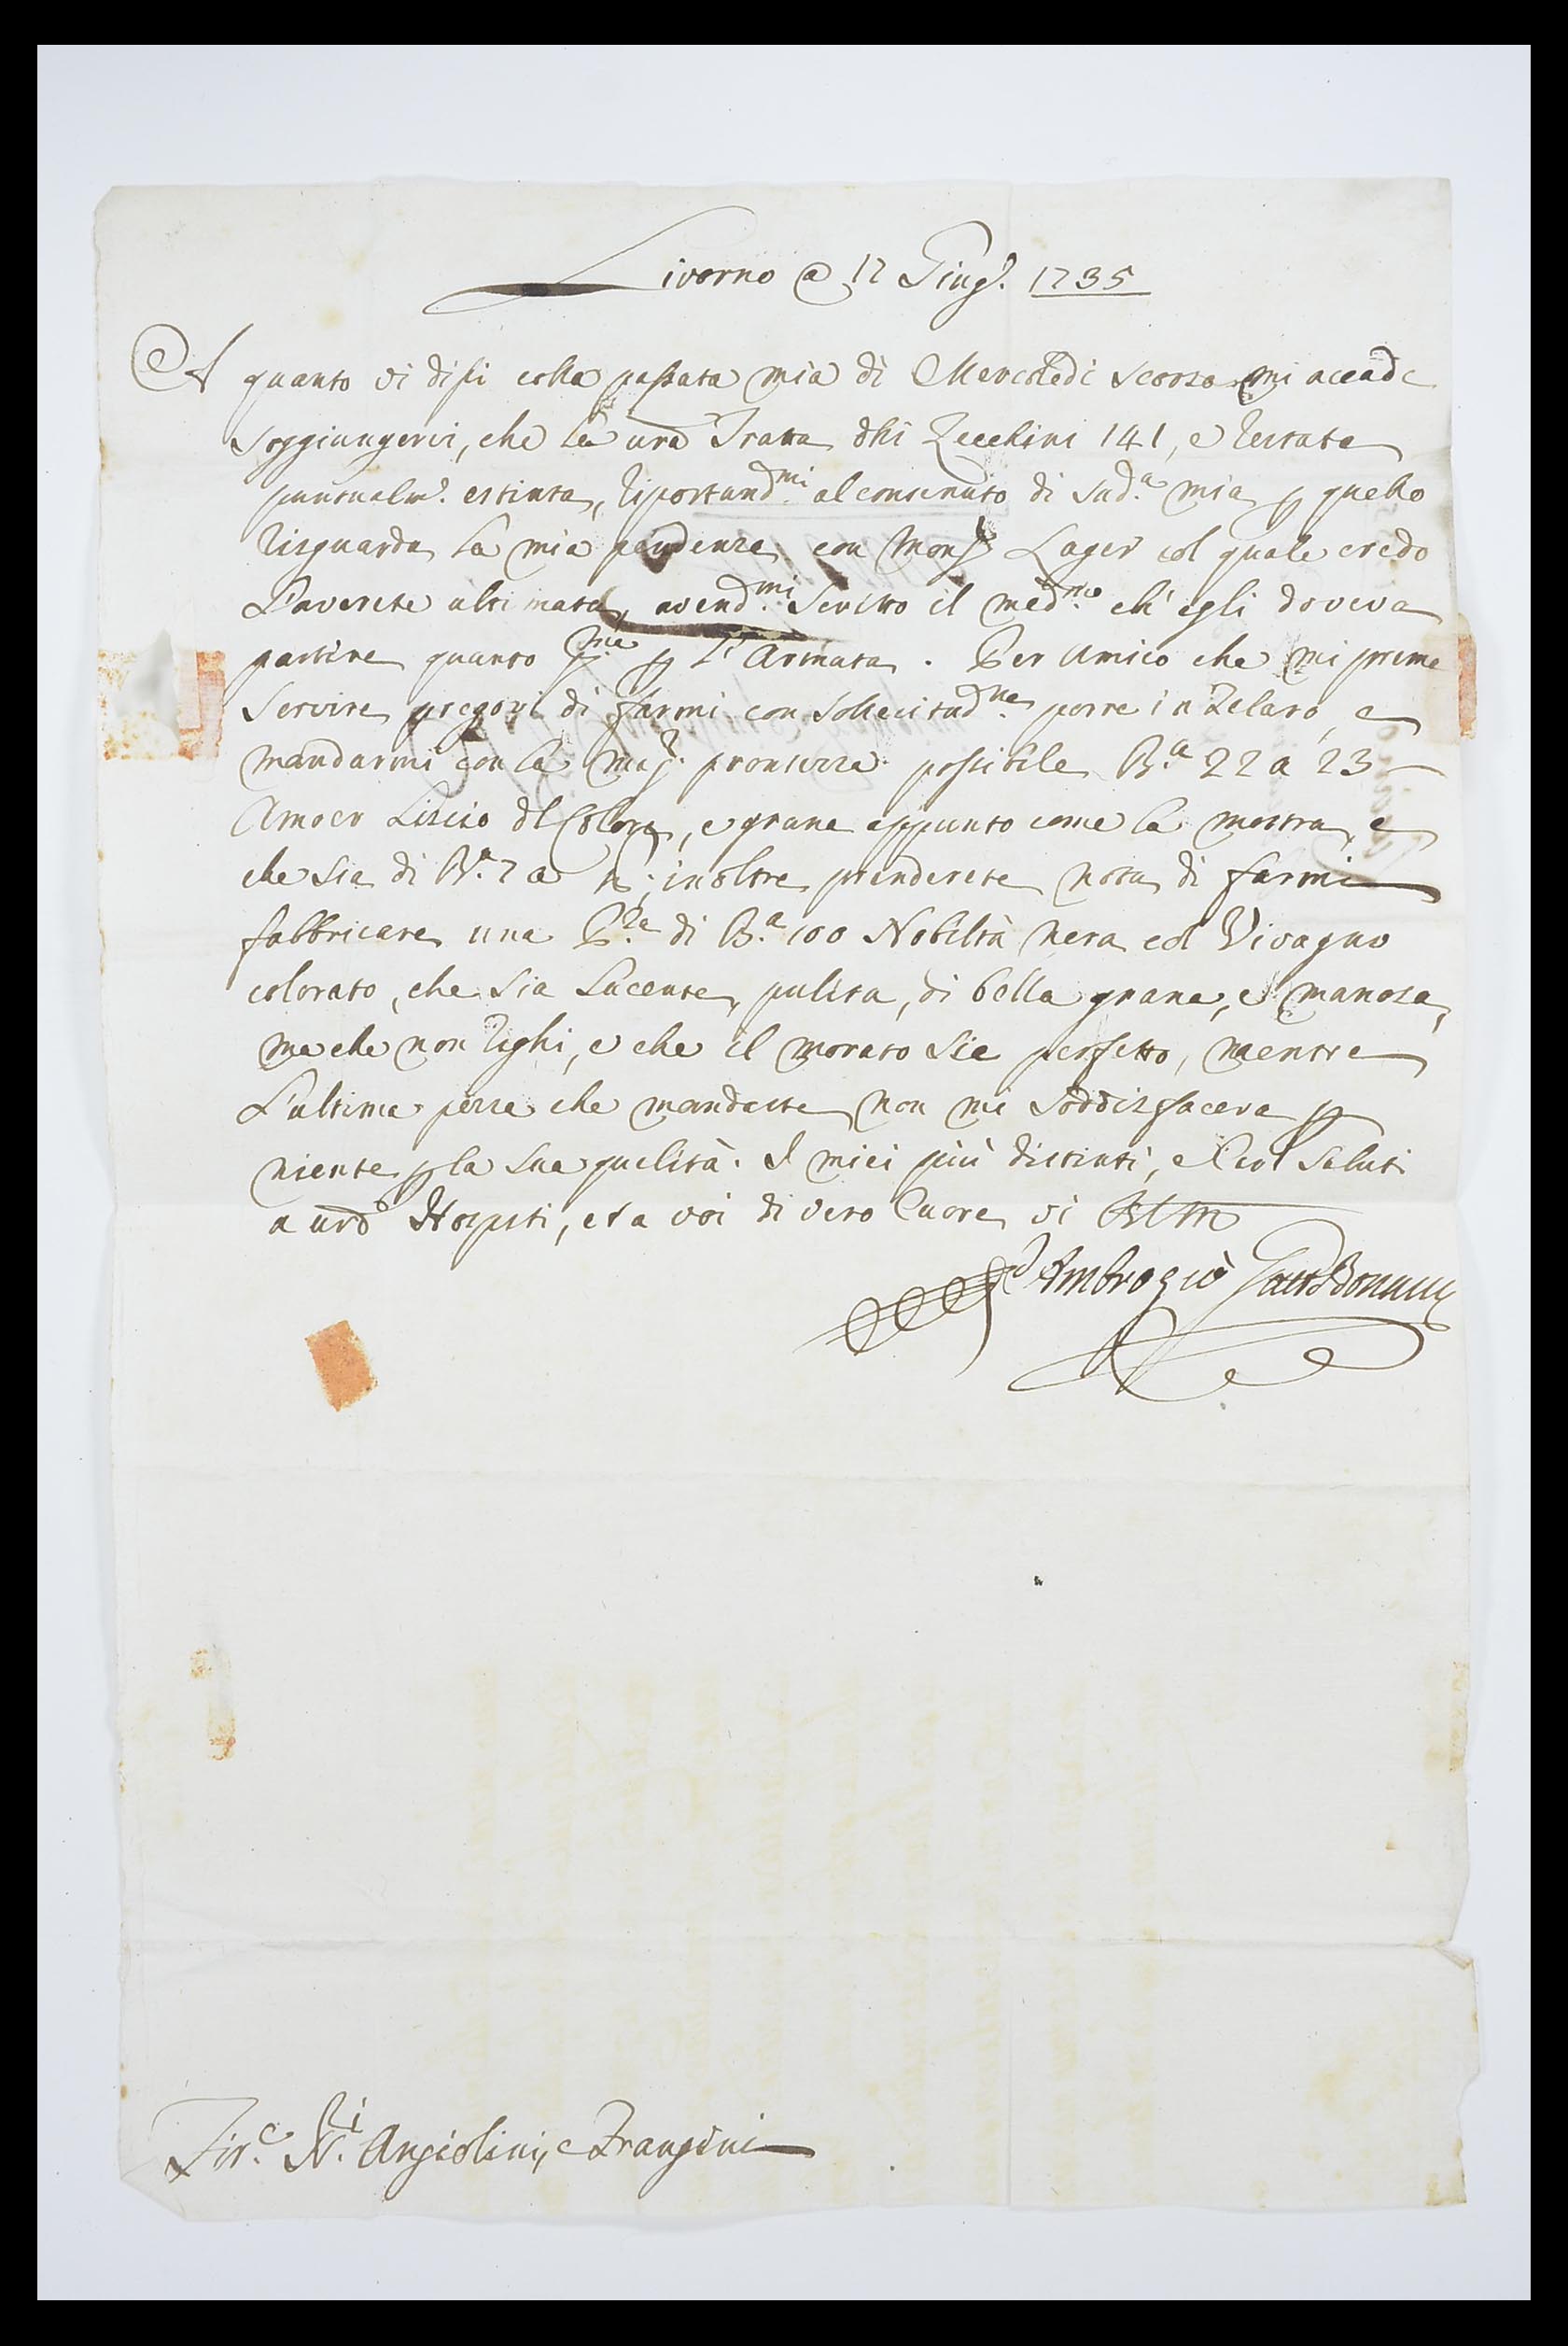 Livorno a 17 Giug.o 1735
A quanto vi dissi colla passata mia di Mercoledi scorso mi accade
soggiungervi, che la vra Tratta dhi Zecchini 141, e restata
puntualm.e estinta, riportand.mi al contenuto di sud.a mia p quello
risguarda la mia pendenza con Mons.r Lager col quale credo
L'averete ultimata, avend.mi scritto il med.mo ch' egli doveva
partire quanto p.ma p L'Armata. Per Amico che mi preme
servire pregovi di farmi con sollecitud.ne porre in Telaro, e
mandarmi con la mag.r prontezza possibile B.a 22 a 23
Amoer Liscio dl Colore, e grana appunto come la mostra, e
che sia di B.a 7 a; inoltre prenderete nota di farmi
fabbricare una P.za di B.a 100 Nobiltà nera col Vivagno
colorato, che sia Lucente, pulita, di bella grana, e manosa,
ma che non righi, e che il morato sia perfetto, mentre
L'ultima pezza che mandaste non mi soddisfaceva p
niente p la sua qualità. I miei più distinti, e Saluti
a vrd Hospiti, et a voi di vero Cuore vi BLM
Ambrogio
Fir.e N.i Angiolini, e Frangini